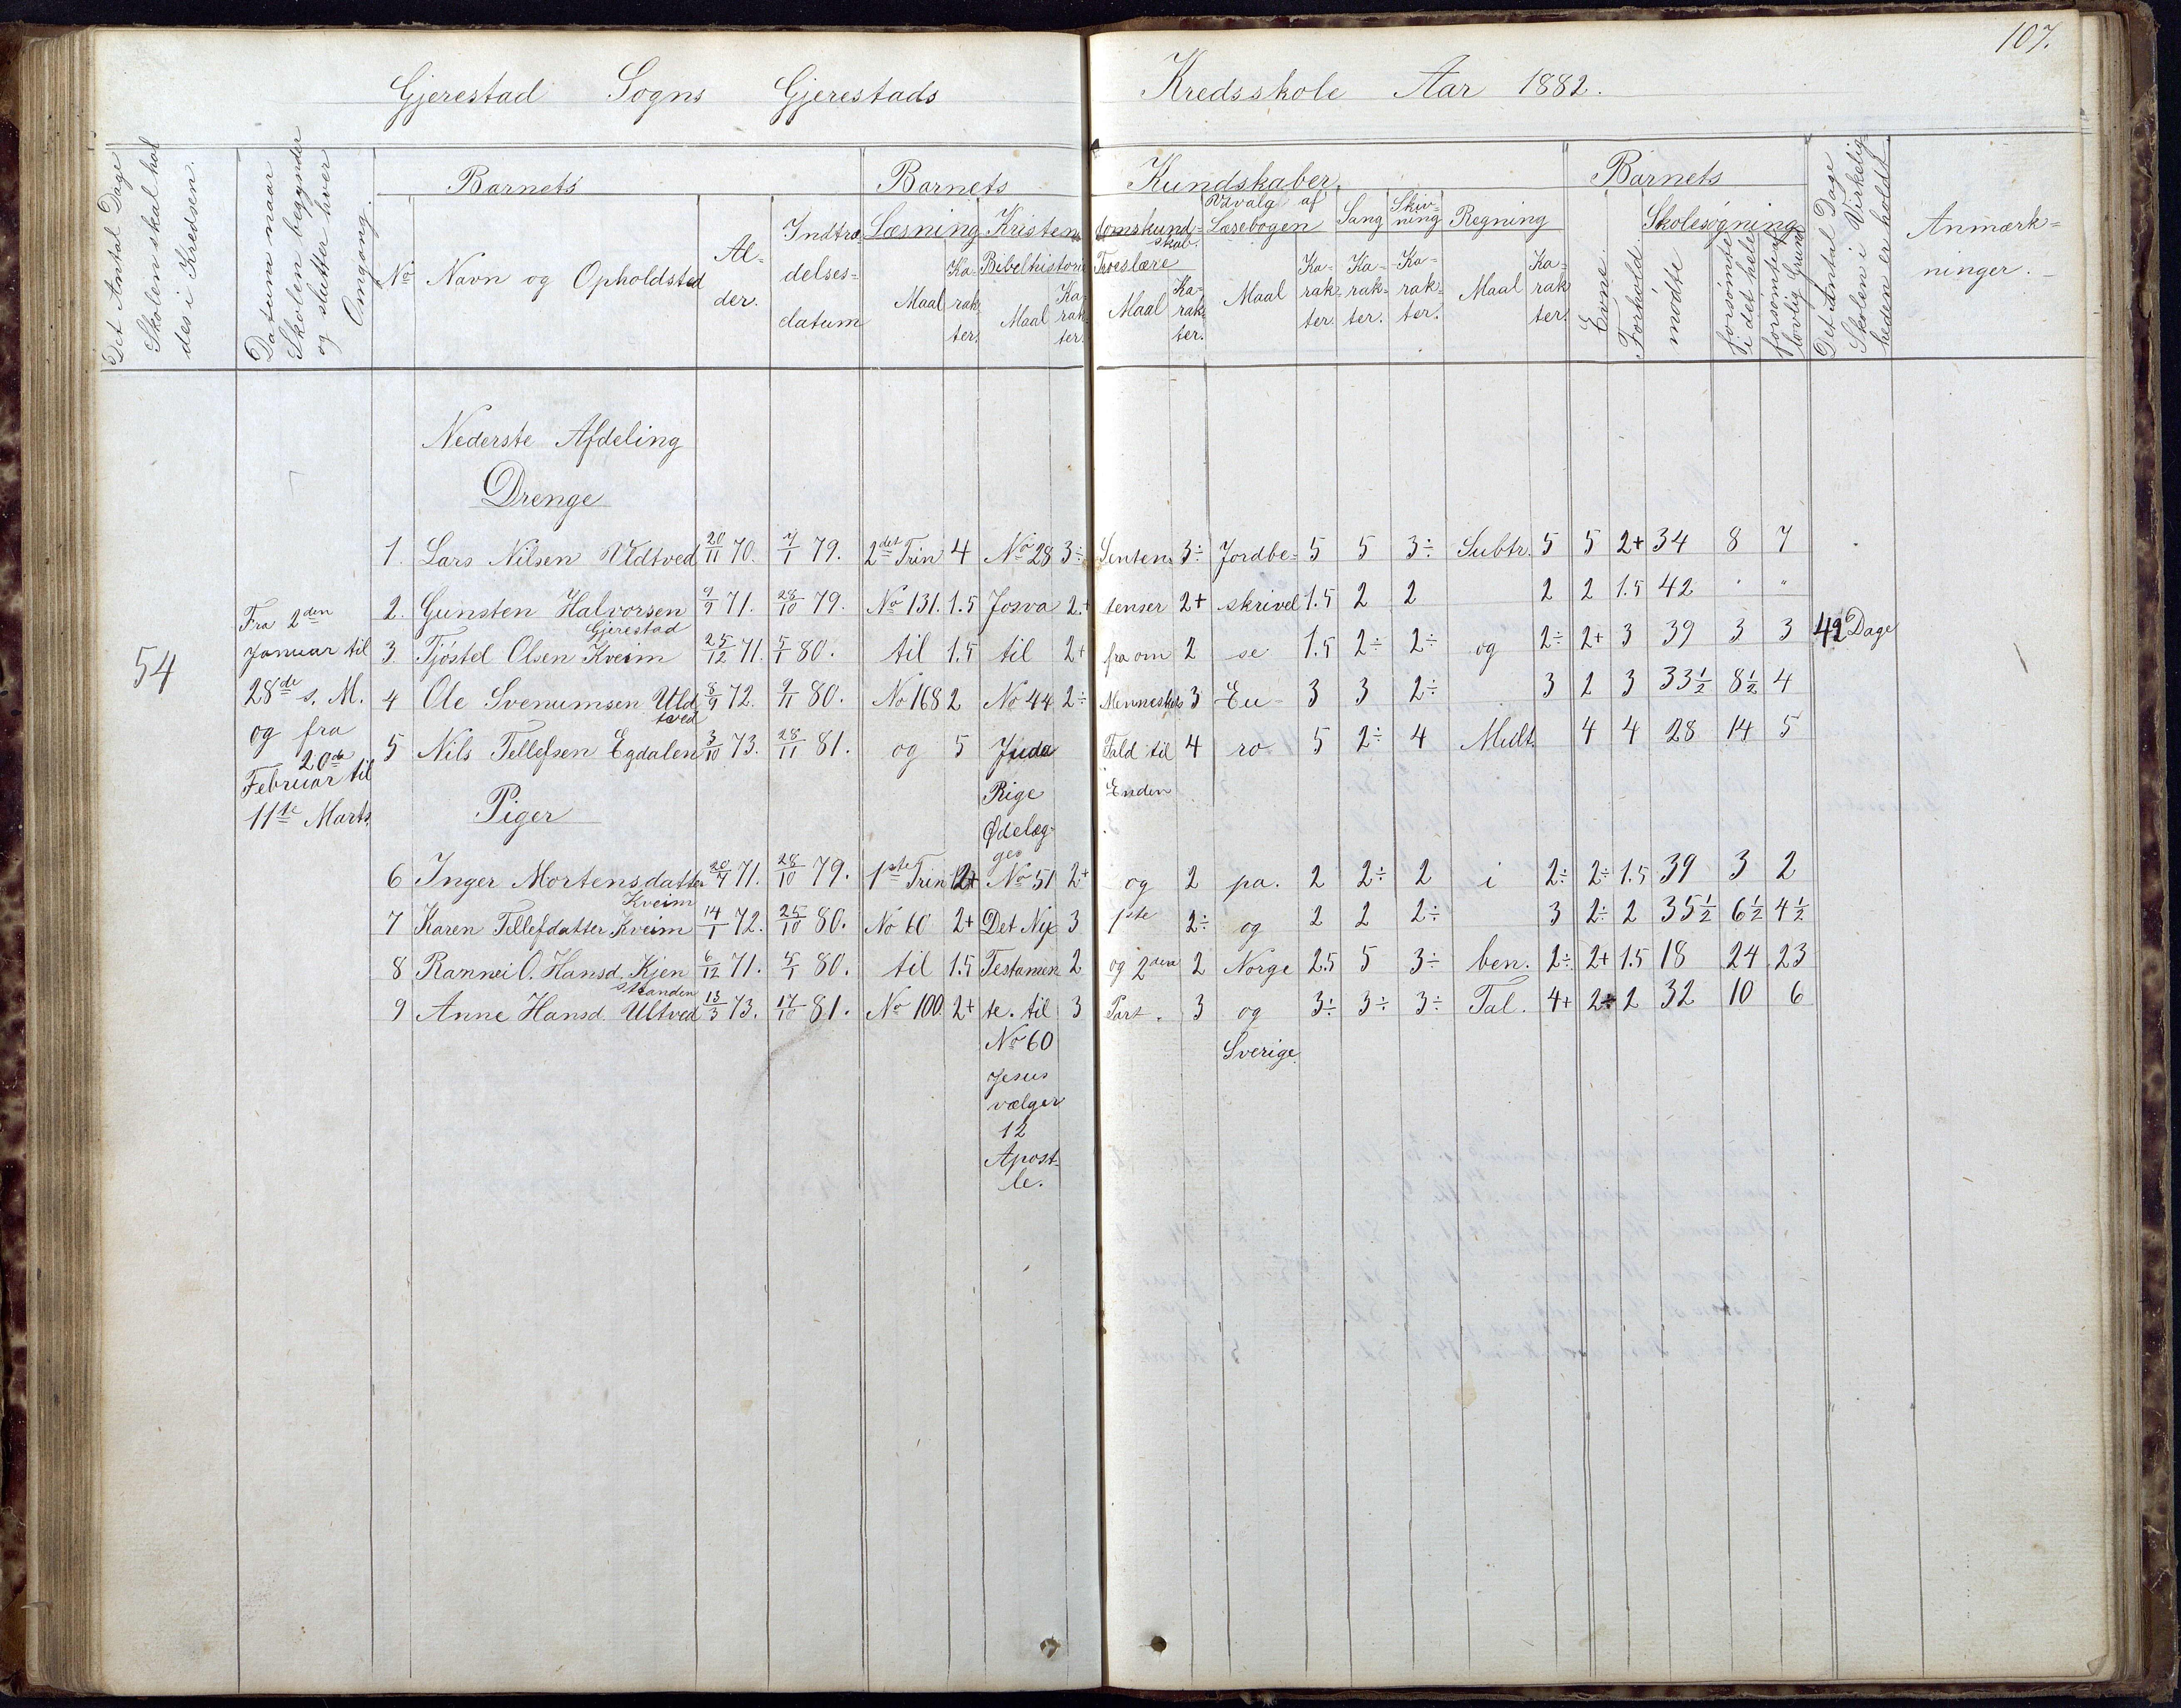 107.
Gjerestad Sogns Gjerestads Kredsskole Aar 1882.
Det Antal Dage Skolen skal holdes i Kredsen.
Datum naar Skolen begynder og slutter hver Omgang.
Barnets
No
Navn og Opholdsted
Al-
der.
Indtræ-
delses-
datum
Barnets Kundskaber.
Læsning
Maal
Ka-
rak-
ter.
Kristendomskund-
skab.
Bibelhistorie
Maal
Ka-
rak-
ter.
Troeslære
Maal
Ka-
rak-
ter.
Udvalg af
Læsebogen
Maal
Ka-
rak-
ter.
Sang
Ka-
rak-
ter.
Skriv-
ning
Ka-
rak-
ter.
Regning
Maal
Ka-
rak
ter.
Barnets
Evne.
Forhold.
Skolesøgning
mødte
forsømte i det hele
forsømte af lovlig Grund
Det Antal Dage Skolen i Virkelig-
heden er holdt.
Anmærk-
ninger.
Nederste Afdeling
Drenge
1. Lars Nilsen Vldtved 20/11 70. 7/1 79. 2det Trin 4 No 28 3÷ Senten= 3÷ Jordbe= 5 5 3÷ Subtr. 5 5 2+ 34 8 7
2. Gunsten Halvorsen 9/9 71. 28/10 79. No 131. 1.5 Josva 2+ tenser 2+ skrivel 1.5 2 2 2 2 1.5 42 " "
Gjerestad
3. Tjøstel Olsen Kveim 25/12 71. 5/1 80. til 1.5 til 2+ fra om 2 se 1.5 2÷ 2÷ og 2÷ 2+ 3 39 3 3 42 Dage
4 Ole Svenumsen Uld
tved 8/9 72. 9/11 80. No 168 2 No 44 2÷ Menneskets 3 Eu- 3 3 2÷ 3 2 3 33½ 8½ 4
5 Nils Tellefsen Egdalen 3/10 73. 28/11 81. og 5 Juda Fald til 4 ro 5 2÷ 4 Mult. 4 4 28 14 5
54
Fra 2den
Januar til
28de s. M.
og fra
20de
Februar til
11te Marts.
Rige Enden
Piger
Ødelæg-
ges
6 Inger Mortensdatter 20/7 71. 28/10 79. 1ste Trin 2+ No 51 2+ og 2 pa. 2 2÷ 2 i 2÷ 2÷ 1.5 39 3 2
Kveim
7 Karen Tellefdatter Kveim 14/1 72. 25/10 80. No 60 2+ Det Nye 3 1ste 2÷ og 2 2 2÷ 3 2÷ 2 35½ 6½ 4½
8 Rannei O. Hansd. Kjen 6/12 71. 5/1 80. til 1.5 Testamen 2 og 2den 2 Norge 2.5 5 3÷ ben. 2÷ 2+ 1.5 18 24 23
stranden
9 Anne Hansd. Ultved 13/3 73. 17/10 81. No 100. 2+ te. til 3 Part. 3 og 3÷ 3÷ 3÷ Tal. 4+ 2÷ 2 32 10 6
No 60 Sverige.
Jesus
vælger
12
Apost-
le.